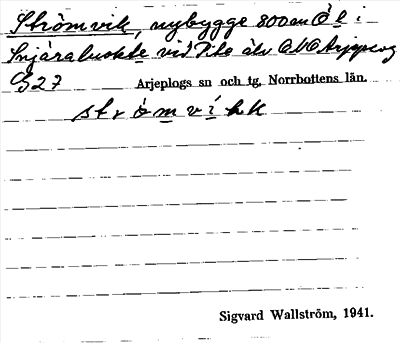 Strömvik, nybygge 800 m Ö l i
Snjáraluokte vid Pite älv ONO Arjeplog
G27 Arjeplogs sn och tg, Norrbottens län.
strömvík
Sigvard Wallström, 1941.